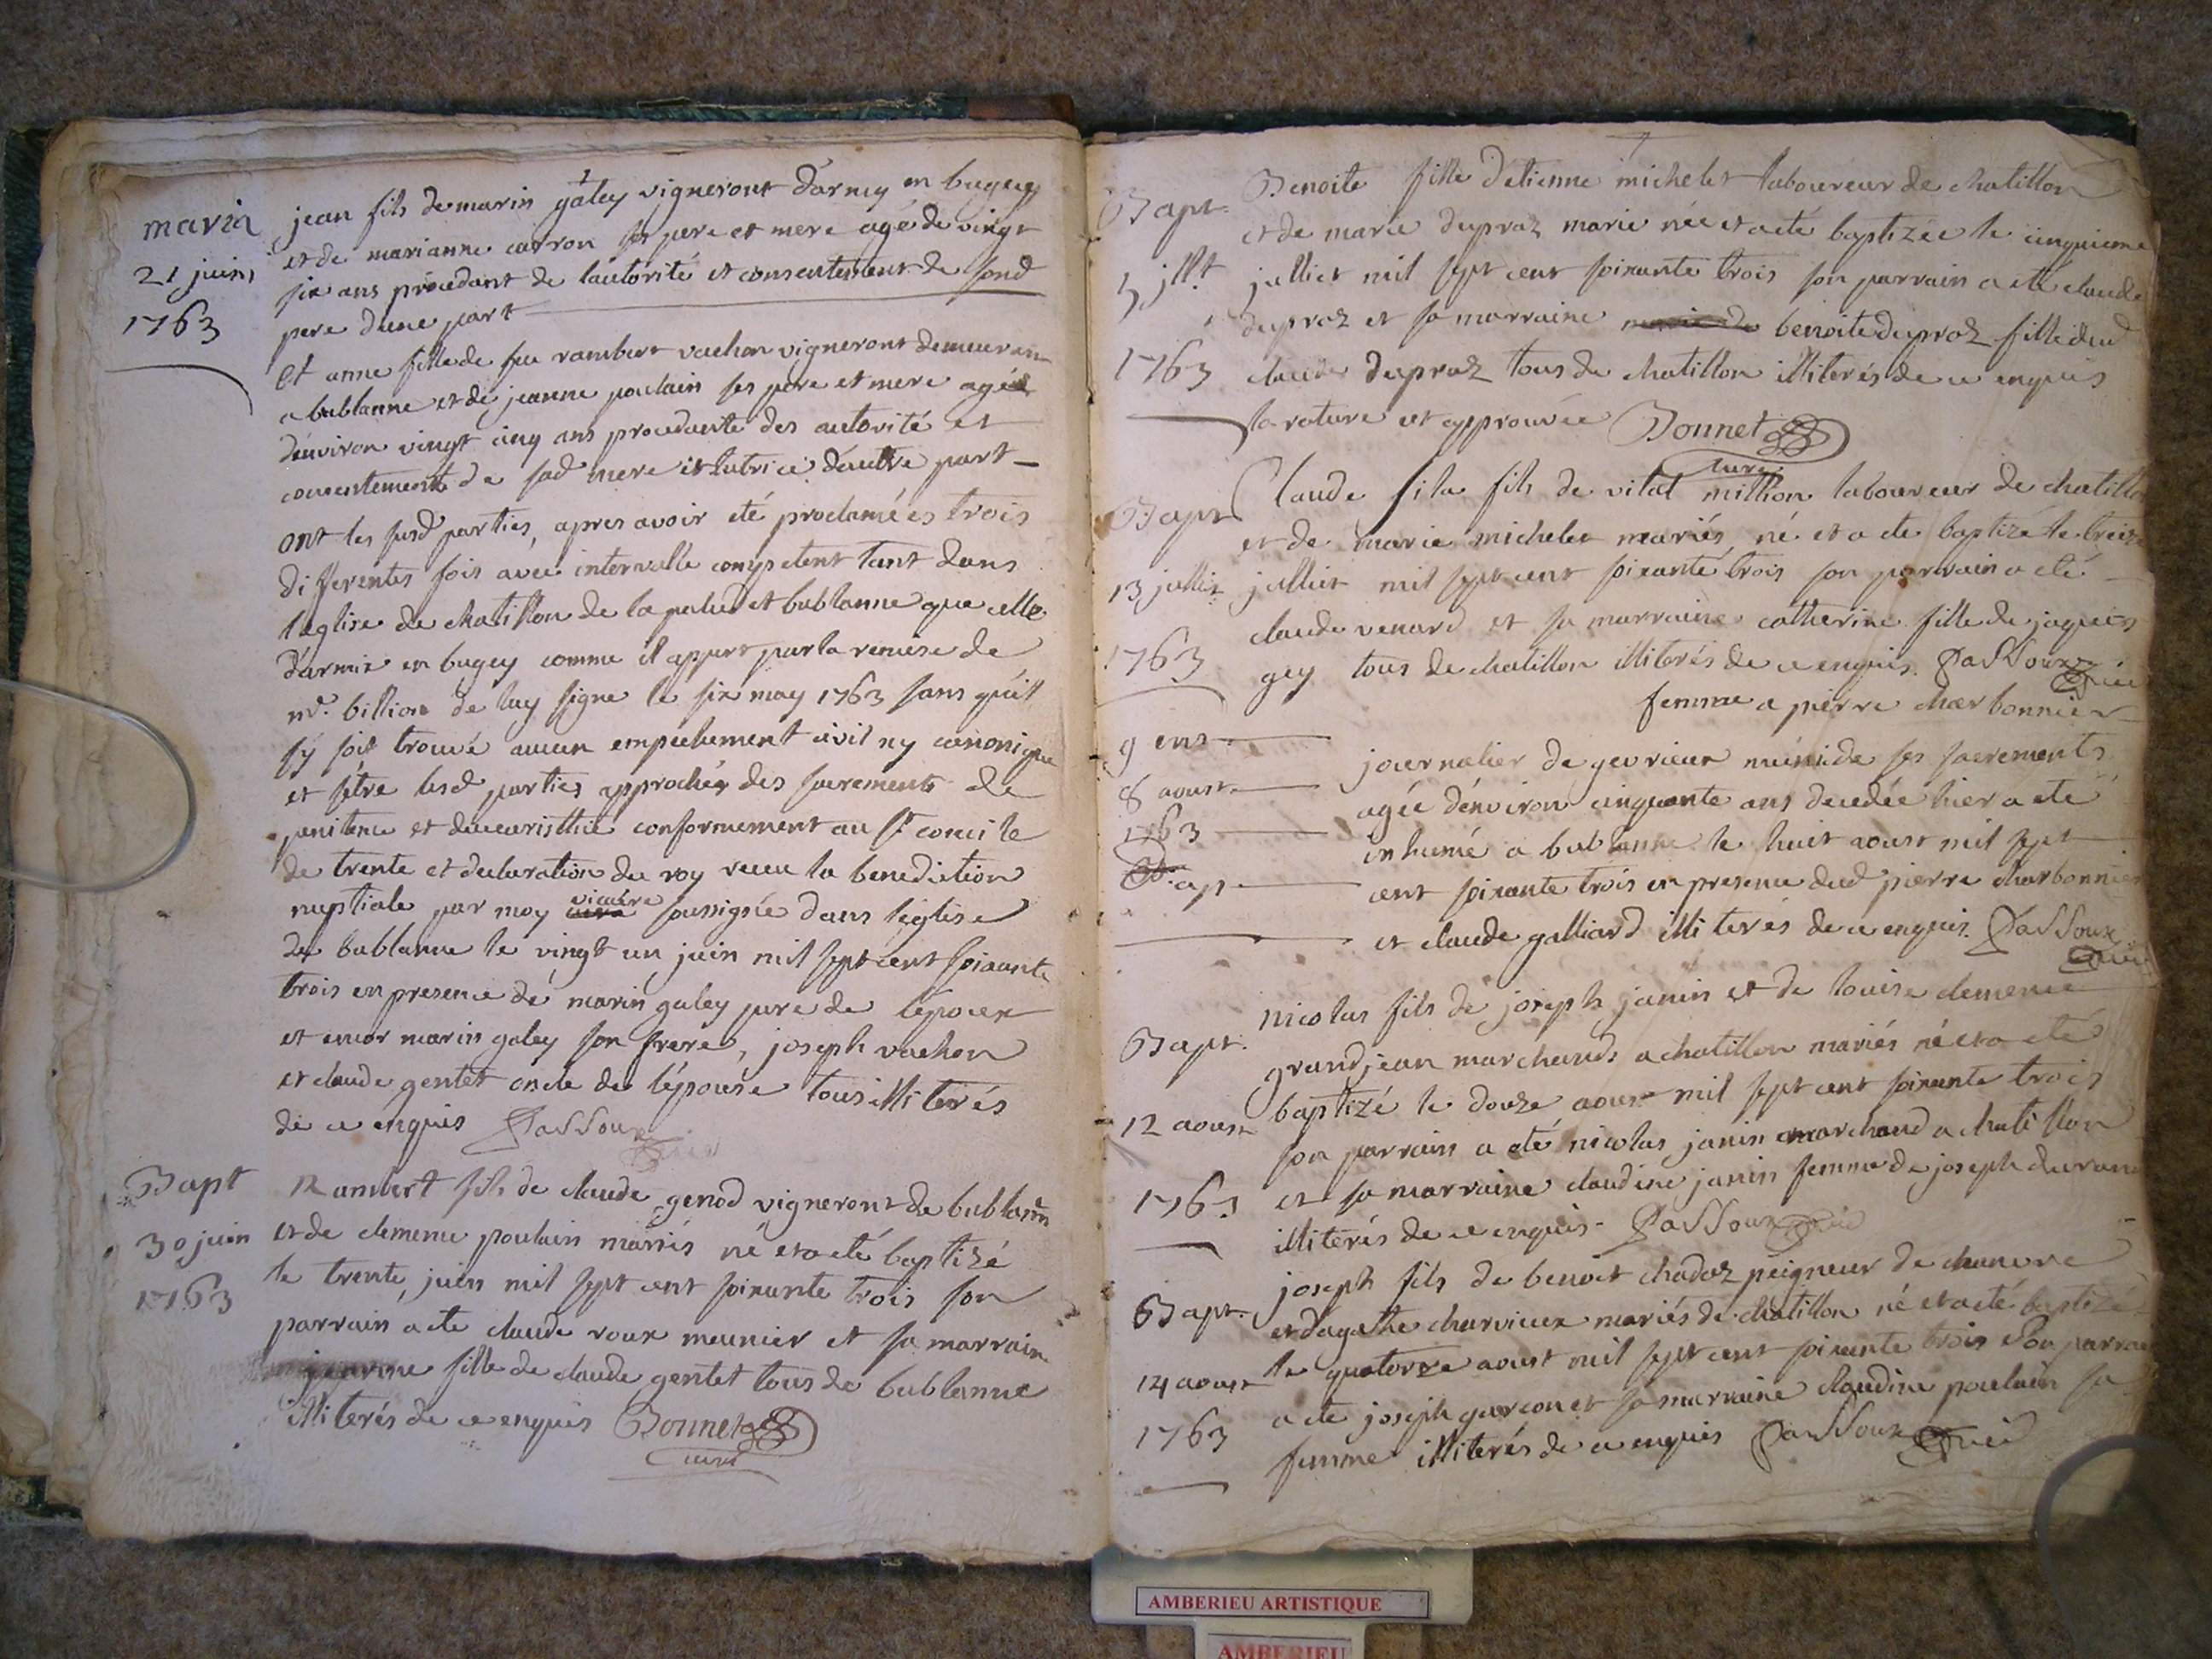 maria
21 juin
1763
jean fils de marin galey vigneront d'army en bugey
et de marianne carron ses pere et mere agé de vingt
six ans procedant de l'autorité et consentement de sond
pere d'une part
et anne fille de feu rambert vachon vigneront demeurant
a bublanne et de jeanne poulain ses pere et mere agée
d'environ vingt cinq ans procedante des autorité et
consentement de sad mere et tutrice d'autre part
ont les susd parties, apres avoir eté proclamées trois
differentes fois avec intervalle competent tant dans
l'eglise de chatillon de la palud et bublanne que celle
d'armix en bugey comme il appert par la remise de
mr. billion de luy signe le six may 1763 sans qu'il
s'y soit trouvé aucun empechement civil ny canonique
et s'etre lesd parties approchés des sacrements de
penitence et d'eucaristhie conformement au st concile
de trente et declaration du roy receu la benediction
nuptiale par moy vicaire soussigné dans l'eglise
de bublanne le vingt un juin mil sept cent soixante
trois en presence de marin galey pere de l'epoux
et encor marin galey son frere, joseph vachon
et claude gentet oncle de l'epouse tous illiterés
de ce enquis Passoux
Bapt
30 juin
1763
Rambert fils de claude genod vigneront de bublanne
et de clemence poulain mariés né et a eté baptizé
le trente juin mil sept cent soixante trois son
parrain a ete claude roux meunier et sa marraine
jeanne fille de claude gentet tous de bublanne
illiterés de ce enquis Bonnet
curé
Bapt.
5 jllt
1763
Benoite fille d'etienne michelet laboureur de chatillon
et de marie dupraz marie née et a eté baptizée le cinquieme
julliet mil sept cent soixante trois son parrain a eté claude
dupraz et sa marraine benoite dupraz fille dud
claude dupraz tous de chatillon illiterés de ce enquis
la rature est approuvée Bonnet
curé
Bapt
13 julliet
1763
Claude fila fils de vital million laboureur de chatillon
et de marie michelet mariés né et a ete baptizé le treize
julliet mil sept cent soixante trois son parrain a eté
claude venard et sa marraine catherine fille de jaques
gey tous de chatillon illiterés de ce enquis. Passoux vic
9 ens
8 aoust
1763
femme a pierre charbonnier
journalier de gevrieux munide ses sacrements
agée d'environ cinquante ans decedée hier a ete
inhumé a bublanne le huit aoust mil sept
cent soixante trois en presence dud pierre charbonnier
et claude galliard illiterés de ce enquis. Passoux vic
Bapt.
12 aoust
1763
nicolas fils de joseph janin et de louise clemence
grandjean marchands a chatillon mariés né et a eté
baptizé le douze aoust mil sept cent soixante trois
son parrain a eté nicolas janin marchand a chatillon
et sa marraine claudine janin femme de joseph durand
illiterés de ce enquis Passoux vic
Bapt.
14 aoust
1763
joseph fils de benoit chadaz peigneur de chanvre
et d'agathe charvieux mariés de chatillon né et a eté baptizé
le quatorze aoust mil sept cent soixante trois son parrain
a ete joseph garcon et sa marraine claudine poulain sa
femme illiterés de ce enquis Passoux vic
AMBERIEU ARTISTIQUE
AMBERIEU